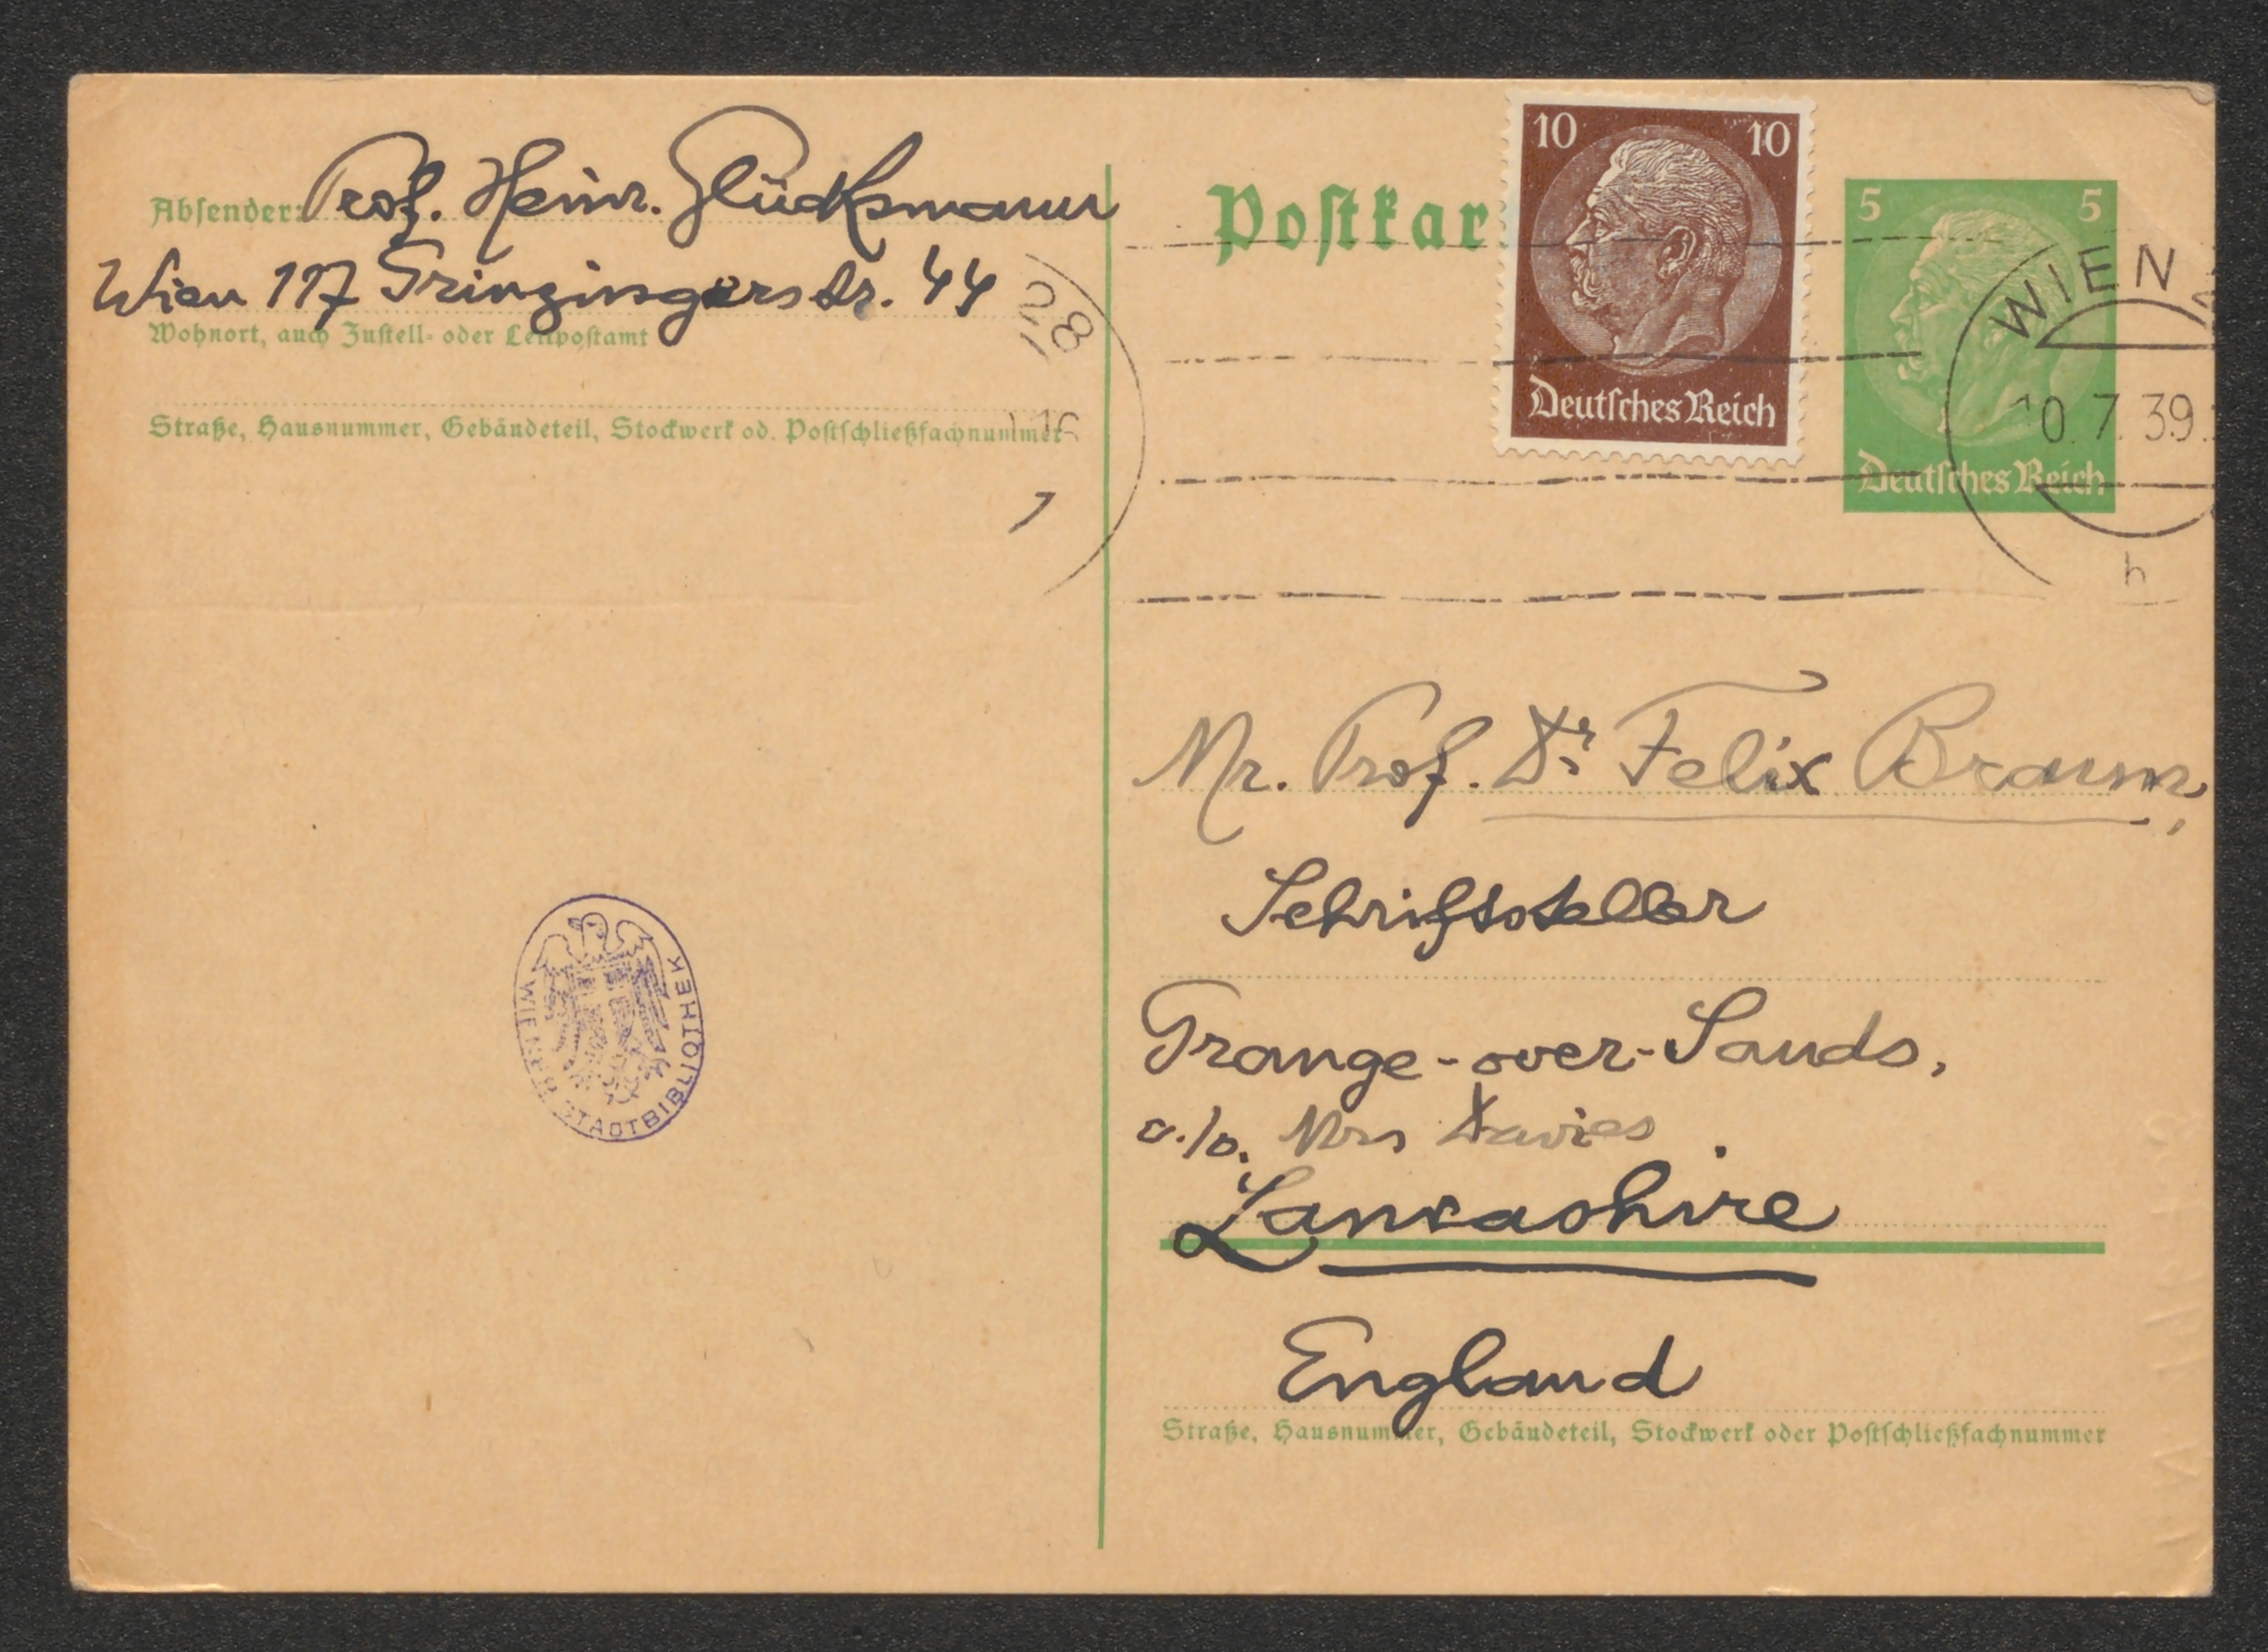 Absender: Prof. Heinr. Glücksmann
Wien 117 Grinzingerstr. 44
Wohnort, auch Zustell- oder Leitpostamt
Straße, Hausnummer, Gebäudeteil, Stockwerk od. Postschließfachnummer
WIENER STADTBIBLIOTHEK
Postkar
10 10
Deutsches Reich
5 5
Deutsches Reich
WIEN
10.7.39
h
Mr. Prof. Dr Felix Braun,
Schriftsteller
Grange-over-Sands,
c./o. Mrs Davies
Lancashire
England
Straße, Hausnummer, Gebäudeteil, Stockwerk oder Postschließfachnummer